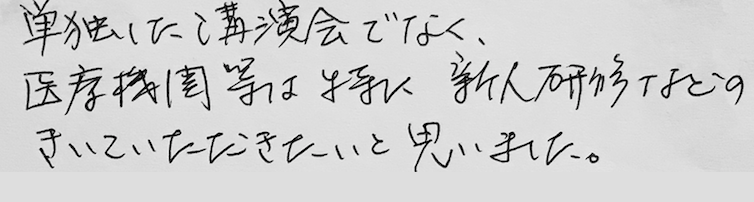 単独した講演会でなく、
医療機関等は特に新人研修などの
きいていただきたいと思いました。